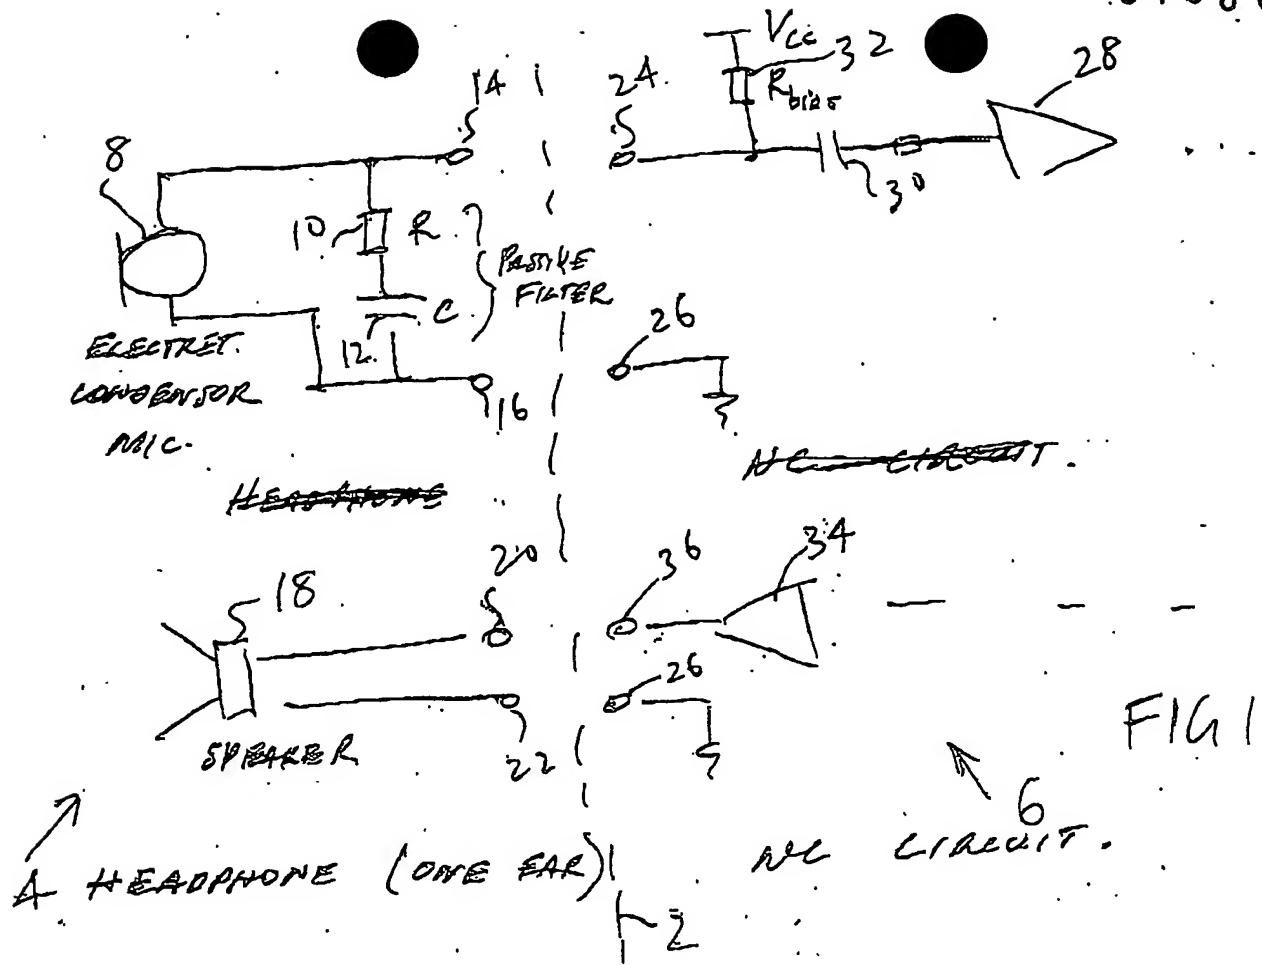 Vcc
32
14
24
28
Rbias
8
30
10
R
PASSIVE
FILTER
C
26
12.
ELECTRET.
CONDENSOR
MIC.
16
NC CIRCUIT.
HEADPHONE
20
36
34
18
26
SPEAKER
22
FIG 1
6
4 HEADPHONE (ONE EAR)
NC CIRCUIT.
2